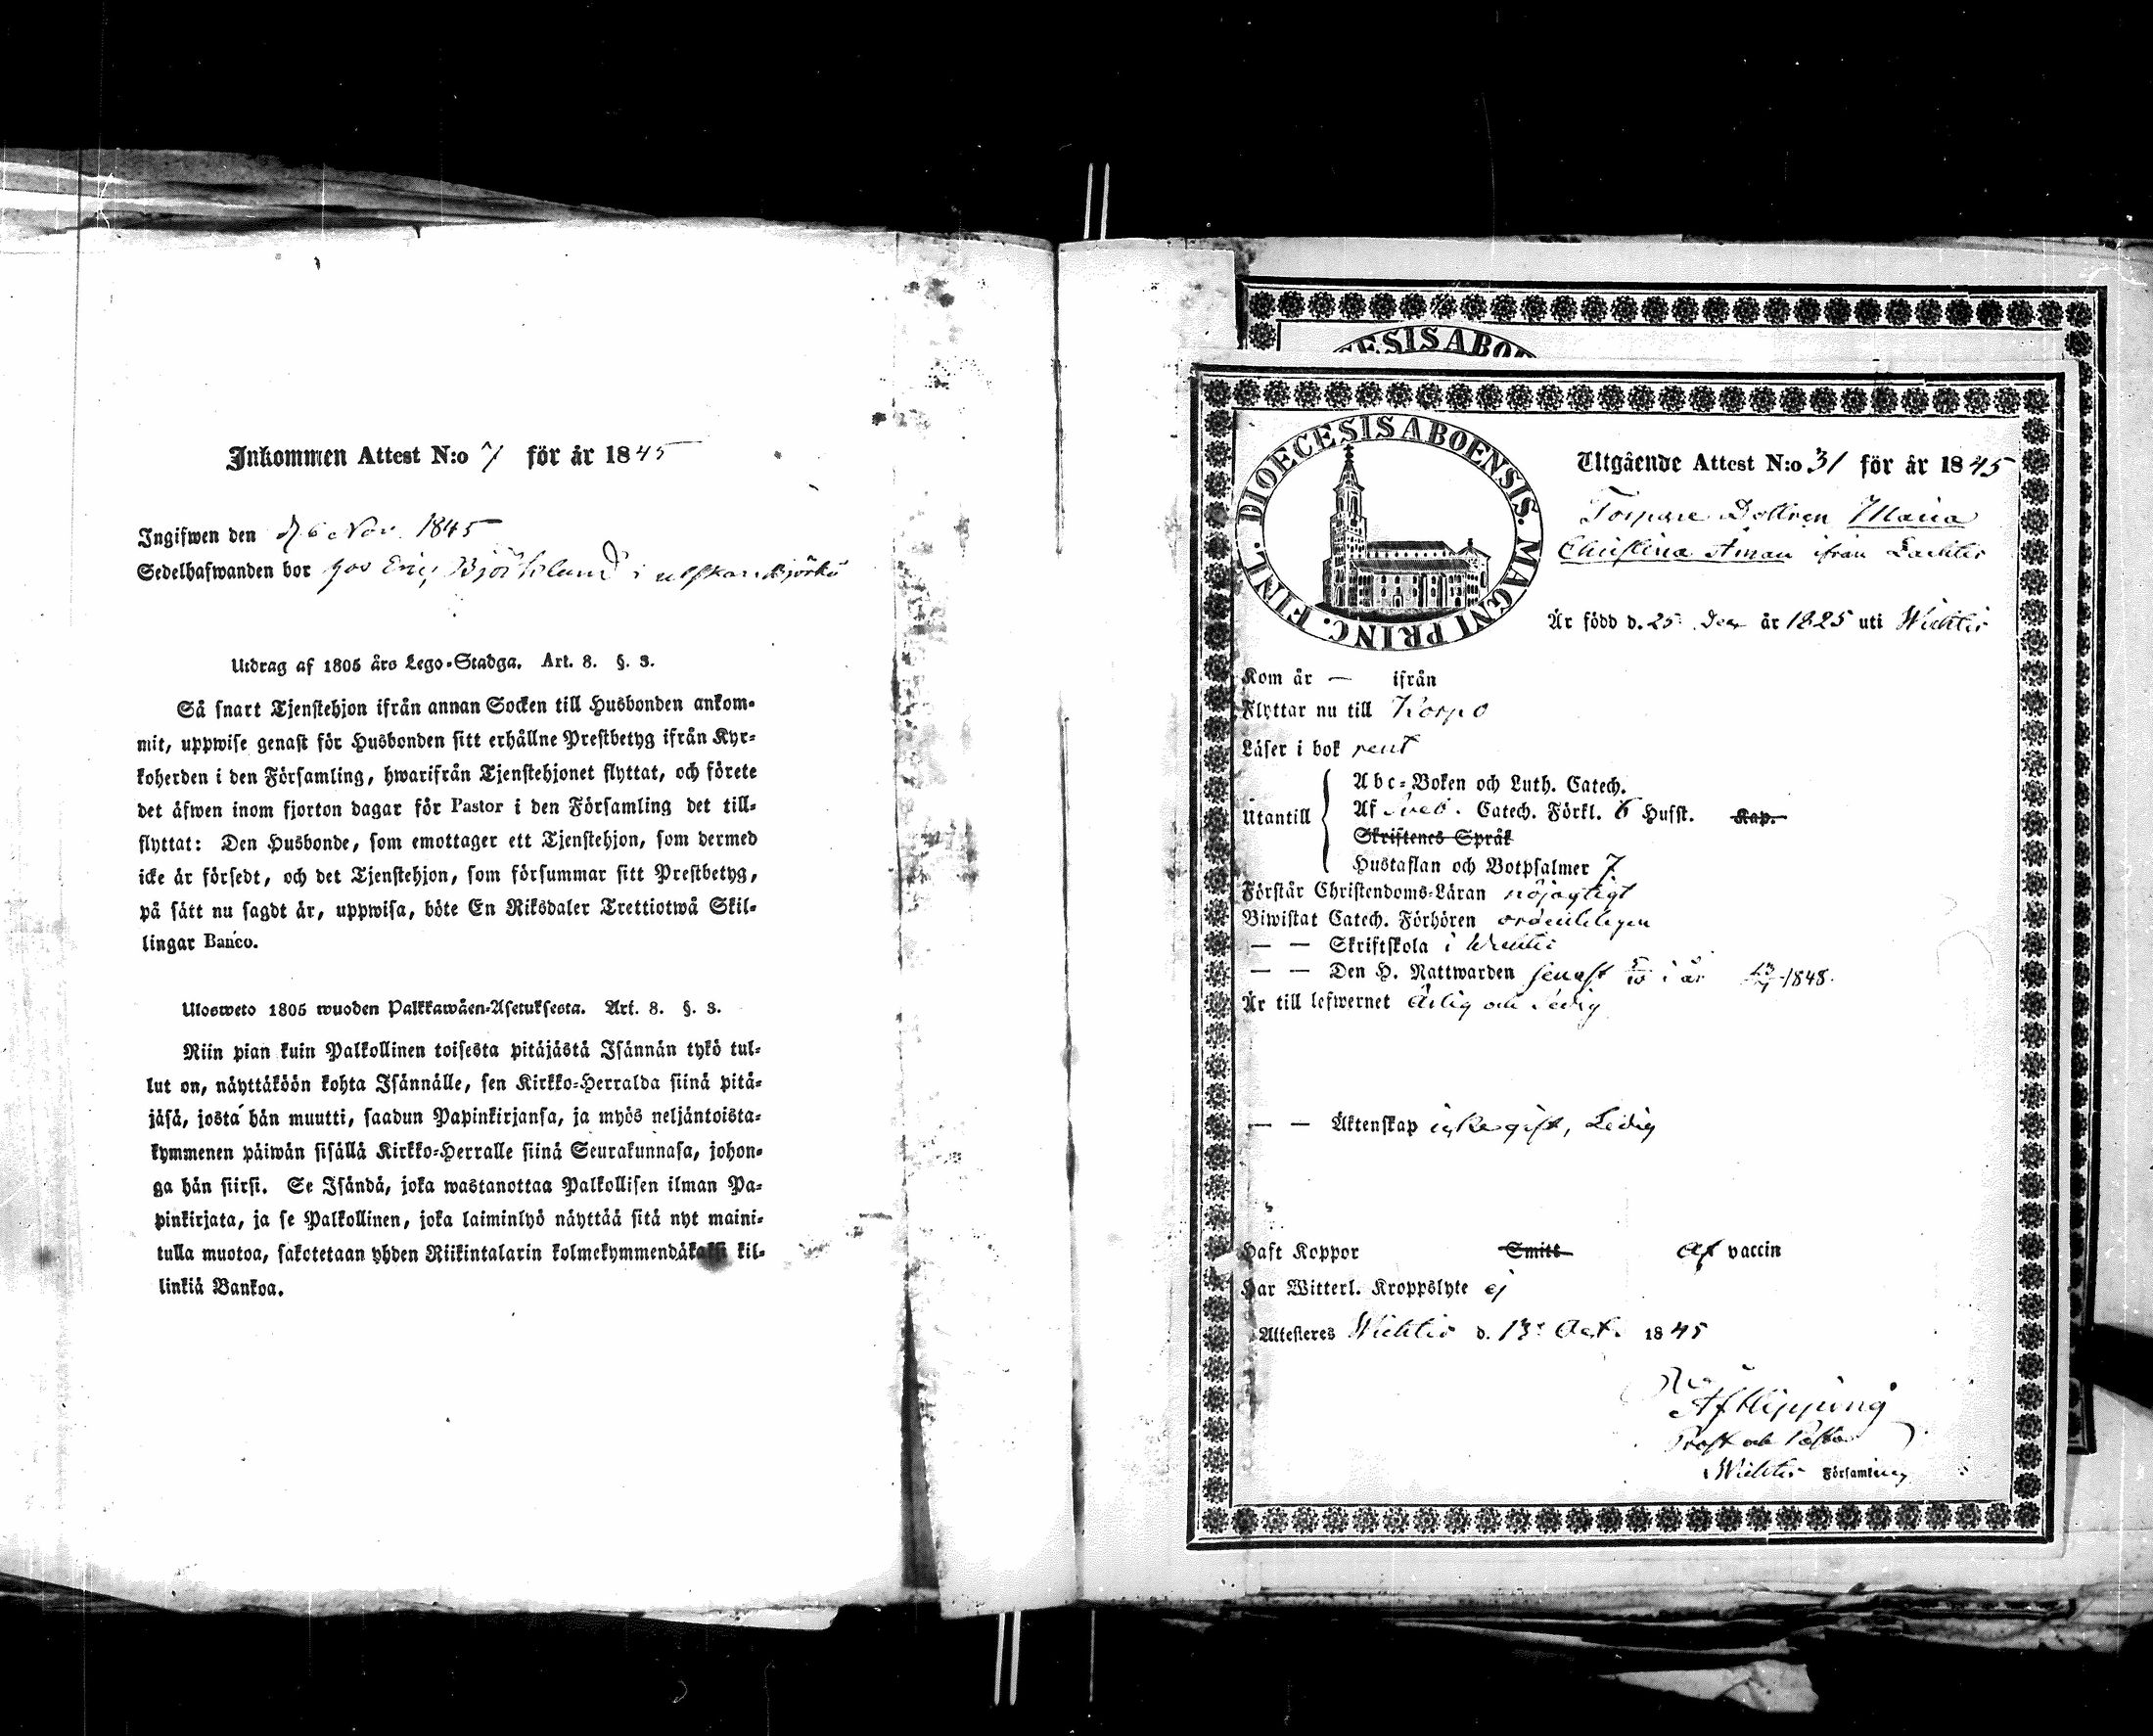 Inkommen Attest N:o 7 för år 1845
Ingifwen den d 6 Nov. 1845
Sedelhafwanden bor hos Eric Björklund i Björkö
Utdrag af 1805 års Lego-Stadga. Art. 8. §. 3.
Så snart Tjenstehjon ifrån annan Socken till Husbonden ankom-
mit, uppwise genast för Husbonden sitt erhållne Prestbetyg ifrån Kyr-
koherden i den Församling, hwarifrån Tjenstehjonet flyttat, och förete
det äfwen inom fjorton dagar för Pastor i den Församling det till-
flyttat: Den Husbonde, som emottager ett Tjenstehjon, som dermed
icke är försedt, och det Tjenstehjon, som försummar sitt Prestbetyg,
på sätt nu sagdt är, uppwisa, böte En Riksdaler Trettiotwå Skil-
lingar Banco.
Ulosweto 1805 wuoden Palkkawäen-Asetuksesta. Art. 8. §. 3.
Niin pian kuin Palkollinen toisesta pitäjästä Isännän tykö tul-
lut on, näyttäköön kohta Isännälle, sen Kirkko-Herralda siinä pitä-
jäsä, josta hän muutti, saadun Papinkirjansa, ja myös neljäntoista-
kymmenen päiwän sisällä Kirkko-Herralle siinä Seurakunnasa, johon-
ga hän siirsi. Se Isändä, joka wastanottaa Palkollisen ilman Pa-
pinkirjata, ja se Palkollinen, joka laiminlyö näyttää sitä nyt maini-
tulla muotoa, sakotetaan yhden Riikintalarin kolmekymmendäkaksi kil-
linkiä Bankoa.
ESIS ABOE
DIOECESIS ABOENSIS. MAGNI PRINC. FINL.
Utgående Attest N:o 31 för år 1845
Torpare Dottren Maria
Christina Åman ifrån
Är född d. 25 Dec är 1825 uti Wichtis
Kom år — ifrån
Flyttar nu till Korpo
Läser i bok rent
Utantill
Abc-Boken och Luth. Catech.
Af Sveb. Catech. Förkl. 6 Husst. Kap.
Skriftenes Språk
Hustaflan och Botpsalmer 7
Förstår Christendoms-Läran nöjagtigt
Biwistat Catech. Förhören ordentligen
— — Skriftskola i Wichtis
— — Den H. Nattwarden senast 5/10 i år 1848.
Är till lefwernet Ärlig och Sedig
— — Äktenskap icke gift, Ledig
Haft Koppor Smitt Af vaccin
Har Witterl. Kroppslyte ej
Attesteres Wichtis d. 13 Oct. 1845
A F Hipping
Prost och Pastor
Wichtis Församling